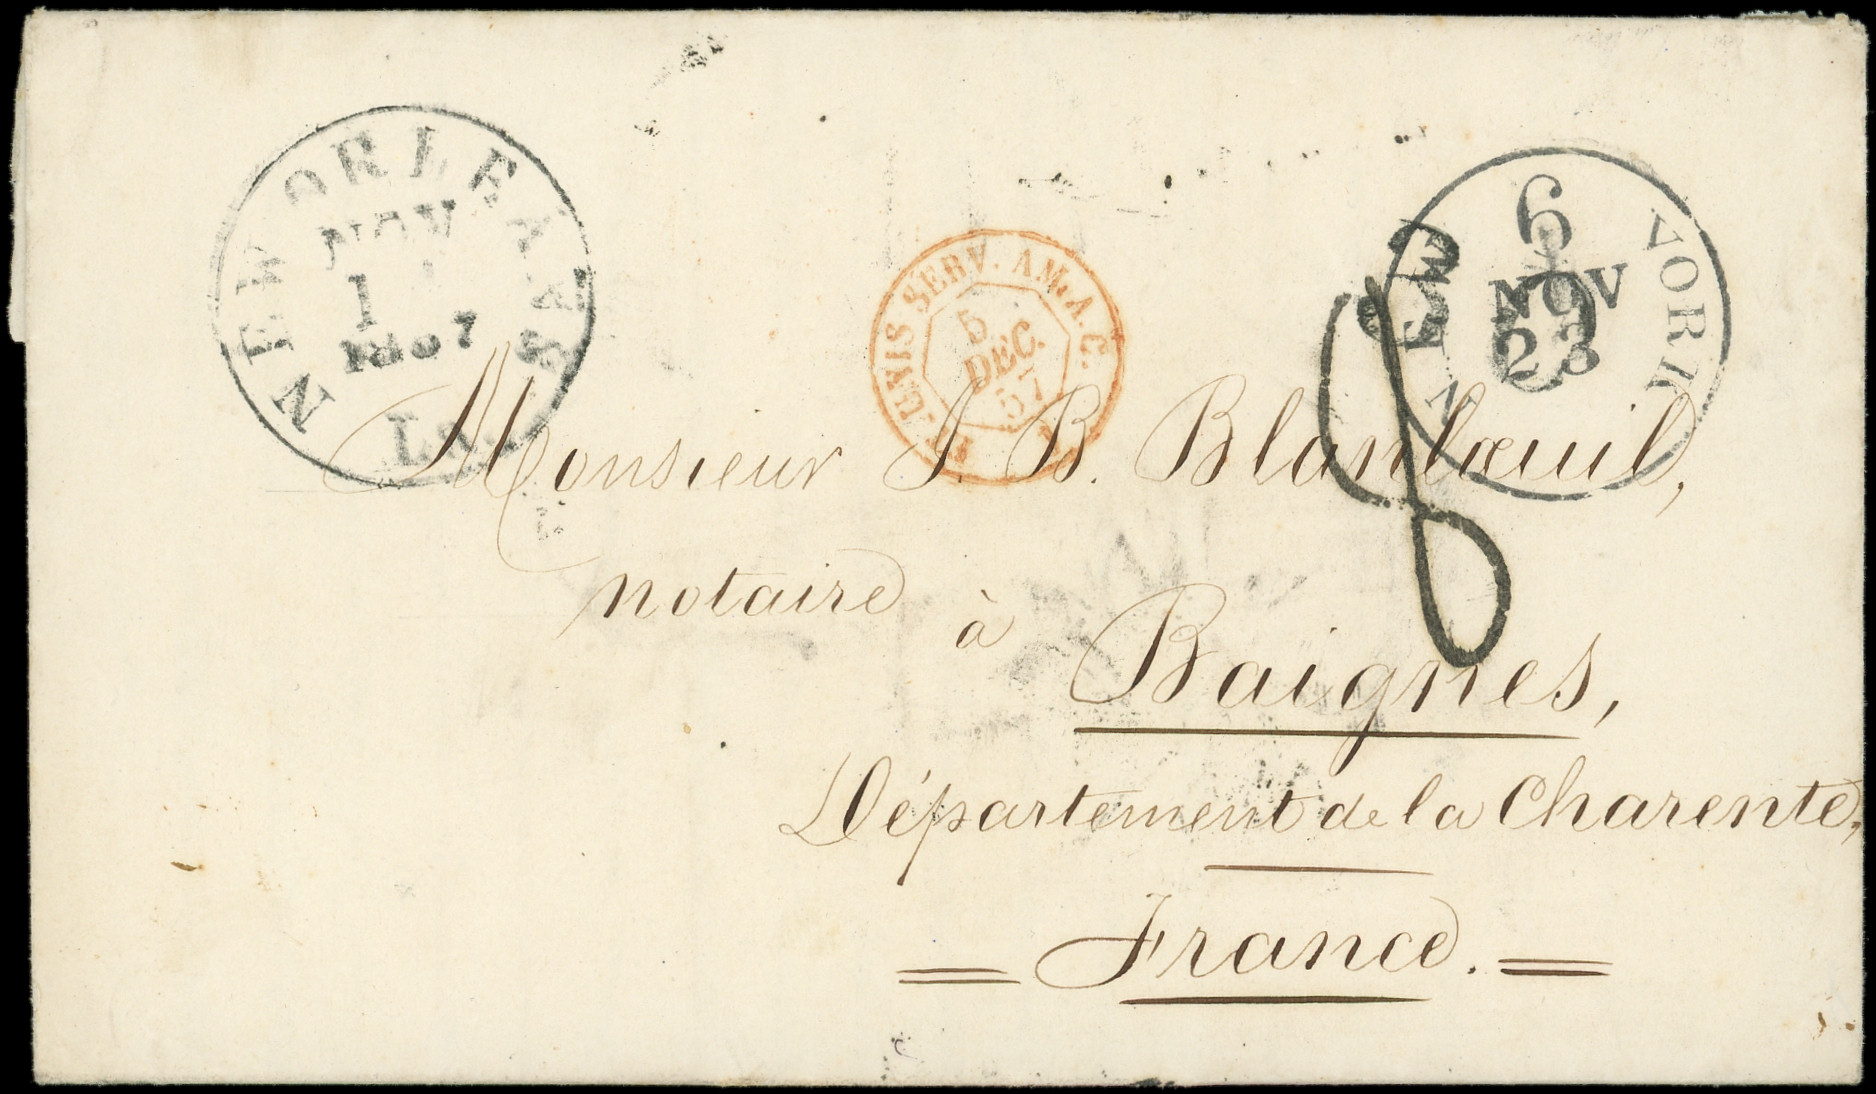 NEW ORLEANS
NOV
1
1857
La.
ET. UNIS SERV. AM. A. C.
5
DEC.
57
NEW YORK
6
NOV
23
8
Monsieur J. B. Blanloeuil,
notaire
à
Baignes,
Département de la Charente,
= France. =